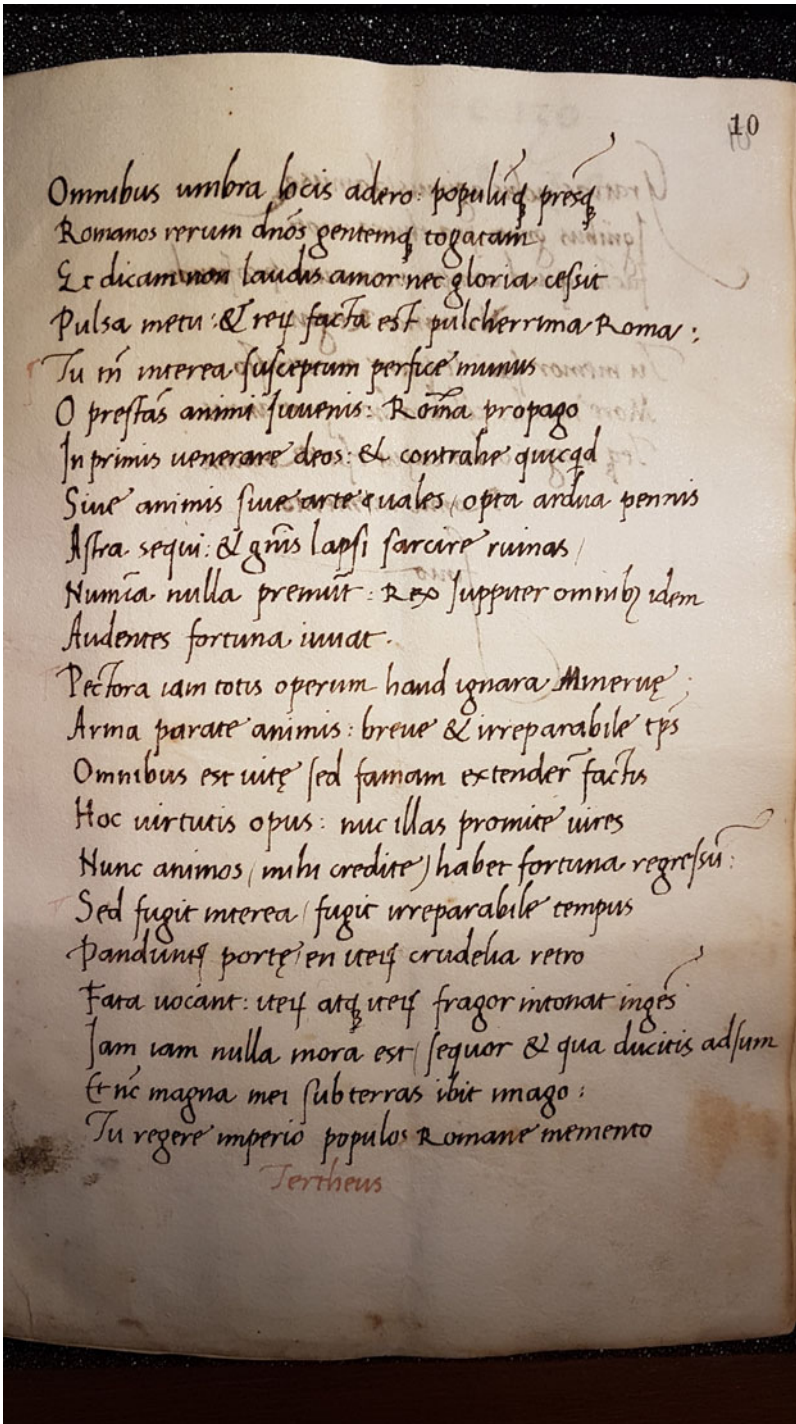 10
Omnibus umbra locis adero: populūq̄ presq̄
Romanos rerum dn̄os gentemq̨ togatam
Et dicam non laudis amor nec gloria cessit
Pulsa metu: & reꝝ facta est pulcherrima Roma:
Tu tn̄ interea susceptum perfice munus
O prestās animi Iuvenis: Rom̄a propago
In primis venerare deos: & contrahe quicq̄d
Sive animis sive arte vales, opta ardua pennis
Astra sequi: & gn̄is lapsi sarcire ruinas,
Numīa nulla premūt: Rex Iuppiter omnibꝫ idem
Audentes fortuna iuvat.
Pectora iam totis operum haud ignara Minervę;
Arma parate animis: breve & irreparabile tp̄s
Omnibus est vitę sed famam extender̄ factis
Hoc virtutis opus: nūc illas promite vires
Nunc animos (mihi credite) habet fortuna regressū:
Sed fugit interea, fugit irreparabile tempus
Panduntꝝ portę, en iteꝝ crudelia retro
Fata vocant: iteꝝ atq̨ iteꝝ fragor intonat ingēs
Iam iam nulla mora est, sequor & qua ducitis adsum
Et nc̄ magna mei sub terras ibit imago:
Tu regere imperio populos Romane memento
Tertheus